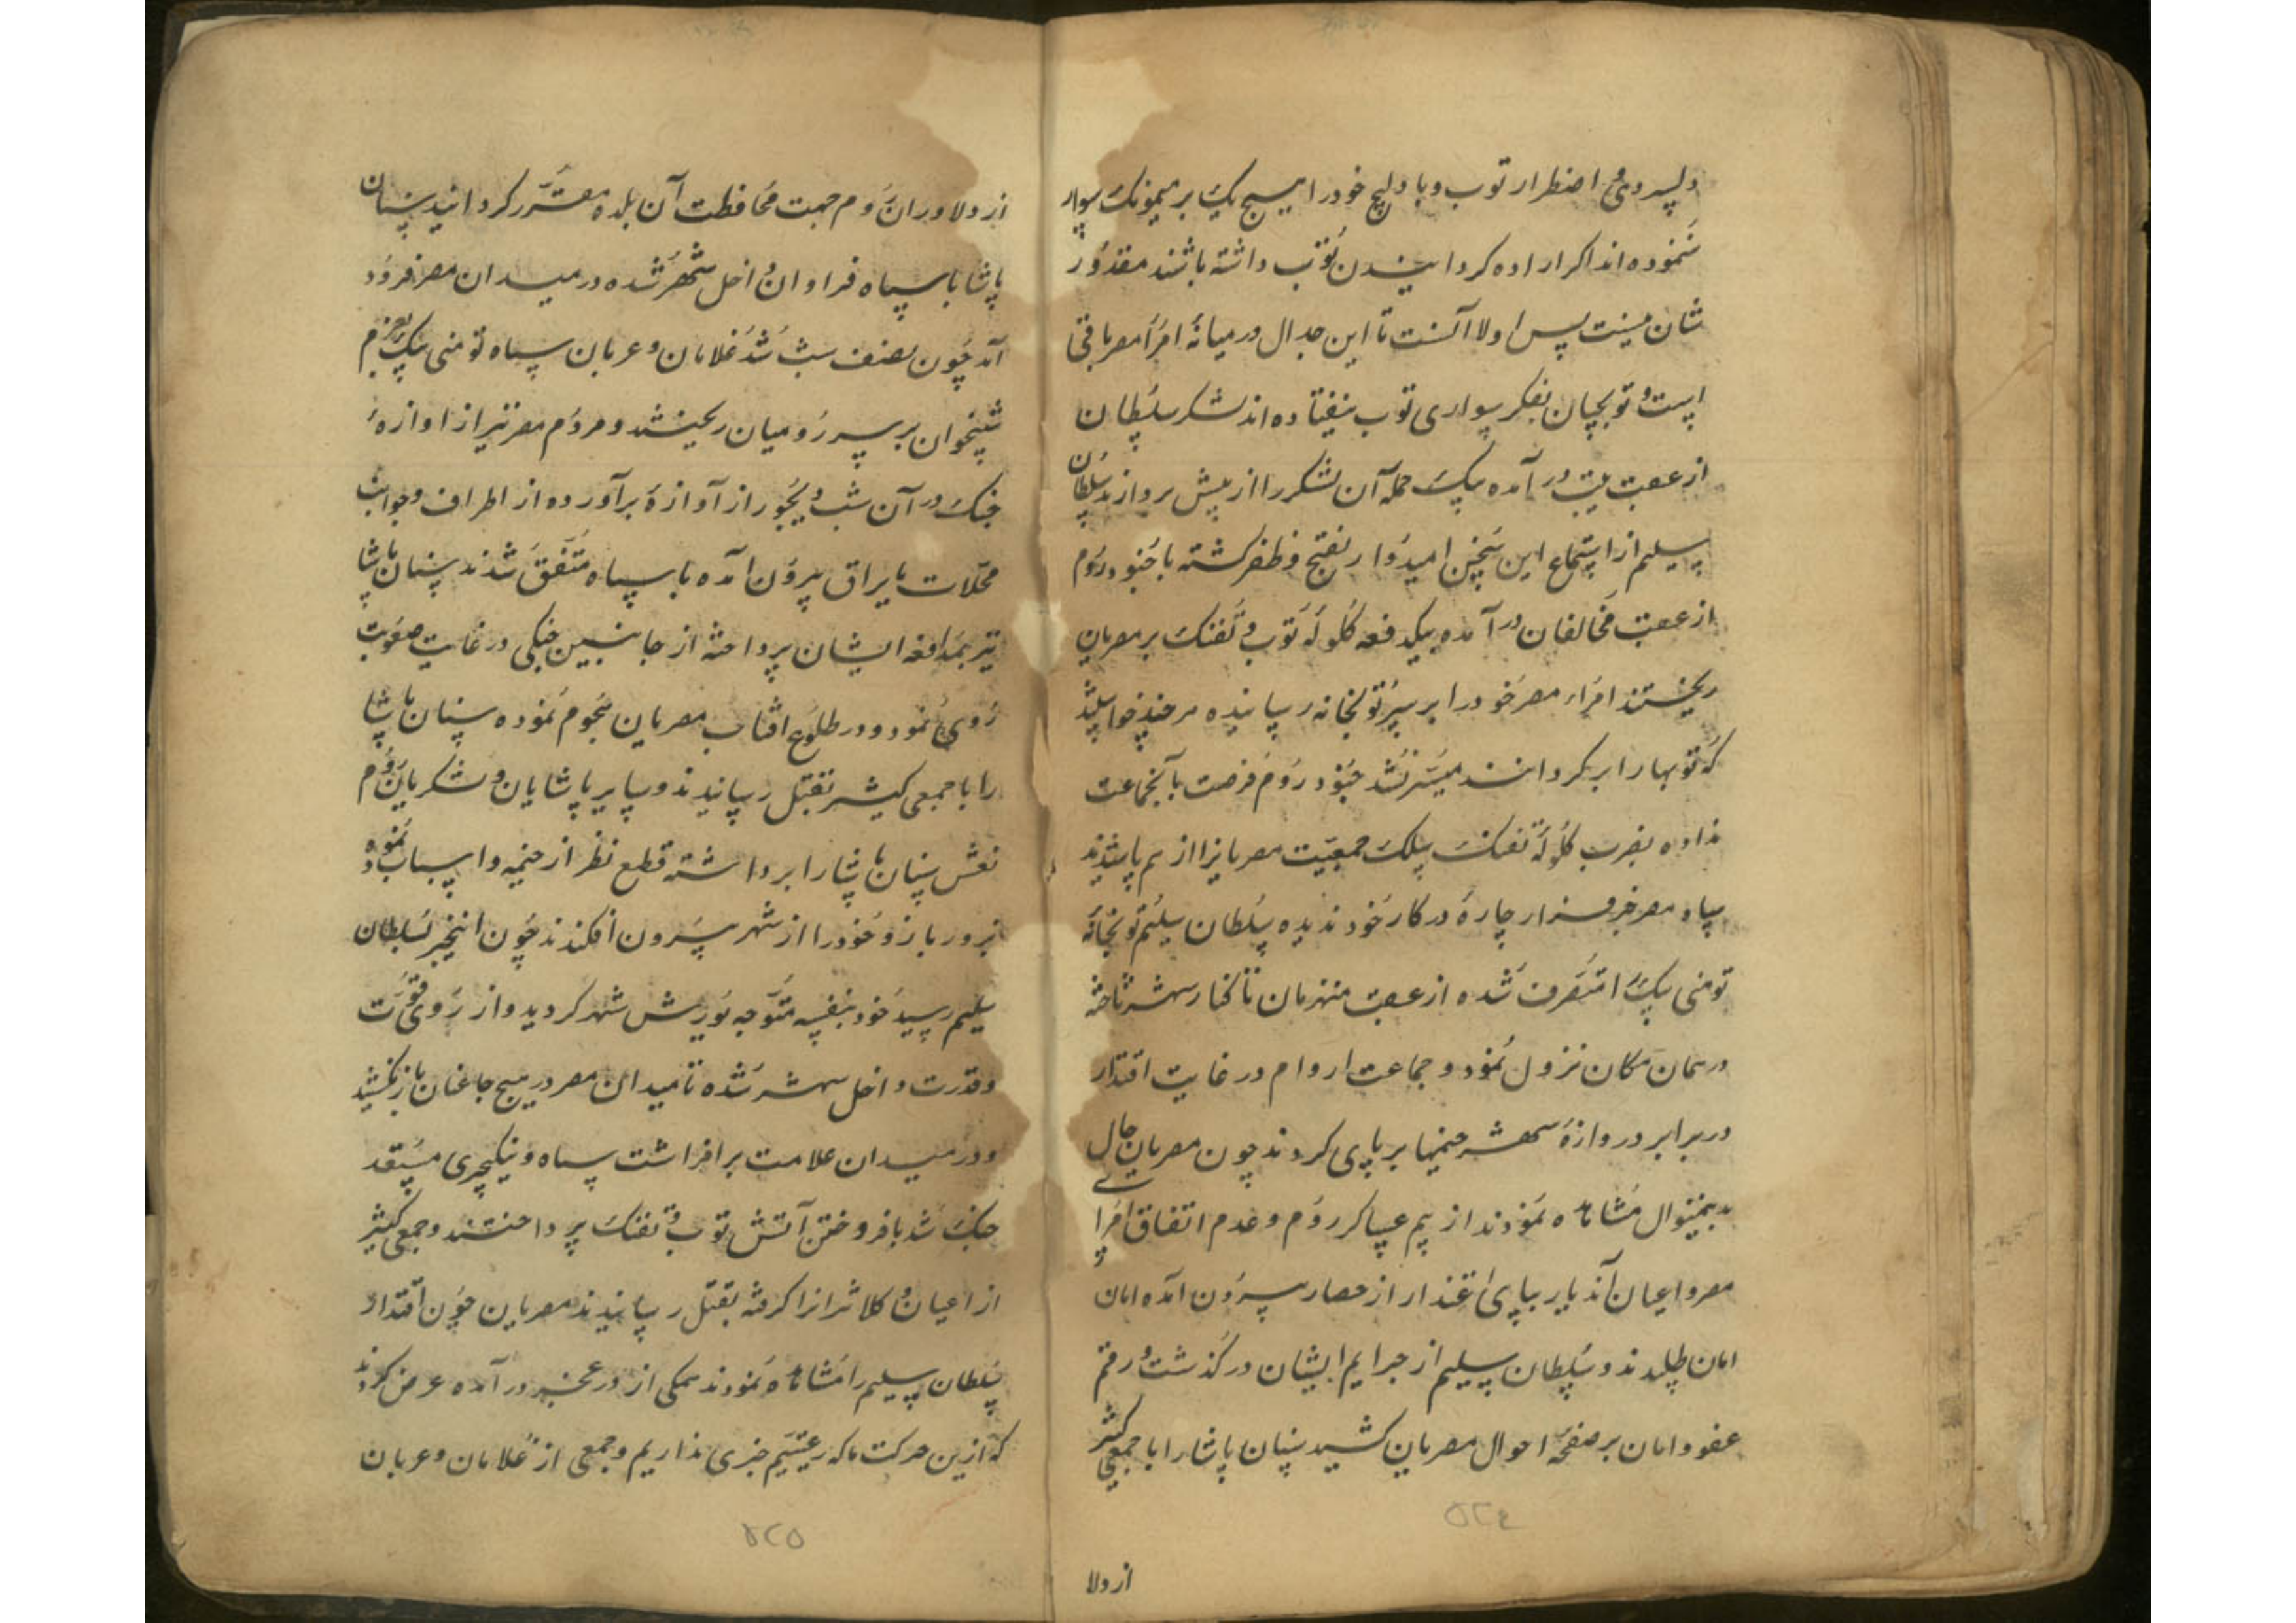 و لپسر وی اضطرار توب و بادلیج خود را هیچ یک بر میمونک سوار
ننموده اند اکر اراده کردانیدن توب داشته باشند مقدور
شان نیست پس اولا آنست تا این جدال در میانهٔ امرا مصر باقی
است و توبچیان بفکر سواری توب نیفتاده اند لشکر سلطان
از عقب در آمده بیک حمله آن لشکر را از پیش بردارند سلطان
سلیم از استماع این سخن امیدوار بفتح و ظفر کشته با جنود روم
از عقب مخالفان در آمده بیکدفعه کلوله توب و تفنک بر مصریان
ریختند امراء مصر خود را بر سر توبخانه رسانیده هر چند خواستند
که توبها را بر کردانند میسر نشد جنود روم فرصت بآنجماعت
نداده بضرب کلوله تفنک سلک جمعیت مصریانرا از هم پاشیدند
سپاه مصر جز فرار چارهٔ در کار خود ندیده سلطان سلیم توبخانه
تومنی بیک را متصرف شده از عقب منهزمان تا کنار شهر تاخته
در همان مکان نزول نمود و جماعت اروام در غایت اقتدار
در برابر دروازهٔ شهر خیمها بر پای کردند چون مصریان حال
بدینمنوال مشاهده نمودند از بیم عساکر روم و عدم اتفاق امرا
مصر و اعیان آندیار بپای اعتذار از حصار بیرون آمده امان
امان طلبیدند و سلطان سلیم از جرایم ایشان در کذشت و رقم
عفو و امان بر صفحهٔ احوال مصریان کشید سنان پاشا را با جمعی کثیر
۵۲۴
از دلا
از دلاوران روم جهت محافظت آن بلده مقرر کردانید سنان
پاشا با سپاه فراوان داخل شهر شده در میدان مصر فرود
آمد چون نصف شب شد غلامان و عربان سپاه تومنی بیک بعزم
شبیخون بر سر رومیان ریختند و مردم مصر نیز از اوازهٔ
جنک در آن شب دیجور از آوازهٔ برآورده از اطراف و جوانب
محلات با یراق بیرون آمده با سپاه متفق شدند سنان پاشا
نیز بمدافعه ایشان پرداخته از جانبین جنکی در غایت صعوبت
روی نمود و در طلوع افتاب مصریان هجوم نموده سنان پاشا
را با جمعی کثیر بقتل رسانیدند و سایر پاشایان و لشکریان روم
نعش سنان پاشا را برداشته قطع نظر از خیمه و اسباب نموده
بزور بازو خود را از شهر بیرون افکندند چون اینخبر بسلطان
سلیم رسید خود بنفسه متوجه یورش شهر کردید و از روی قوت
و قدرت داخل شهر شده تا میدان مصر در هیچ جا عنان باز نکشید
و در میدان علامت برافراشت سپاه و ینکیچری مستعد
جنک شد بافروختن آتش توب و تفنک پرداختند و جمعی کثیر
از اعیان و کلانترانرا کرفته بقتل رسانیدند مصریان چون اقتدار
سلطان سلیم را مشاهده نمودند همکی از در عجز در آمده عرض کردند
که ازین حرکت ما که رعیتیم خبری نداریم و جمعی از غلامان و عربان
۵۲۵